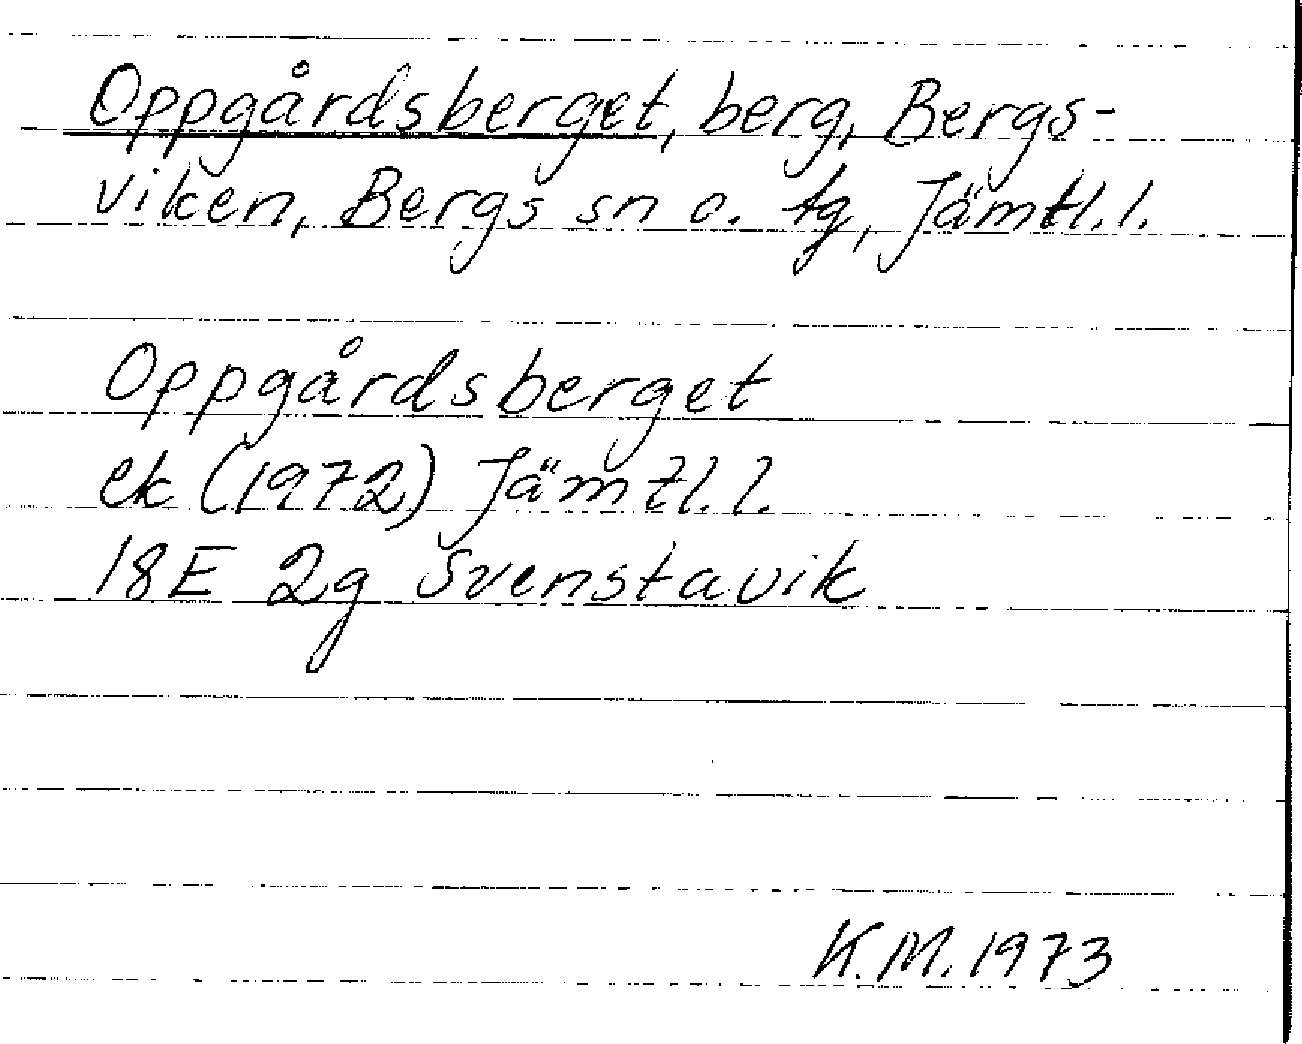 Oppgårdsberget, berg, Bergs-
viken, Bergs sn o. tg, Jämtl. l.
Oppgårdsberget
ek (1972) Jämtl. l.
18E 2g Svenstavik
K.M. 1973